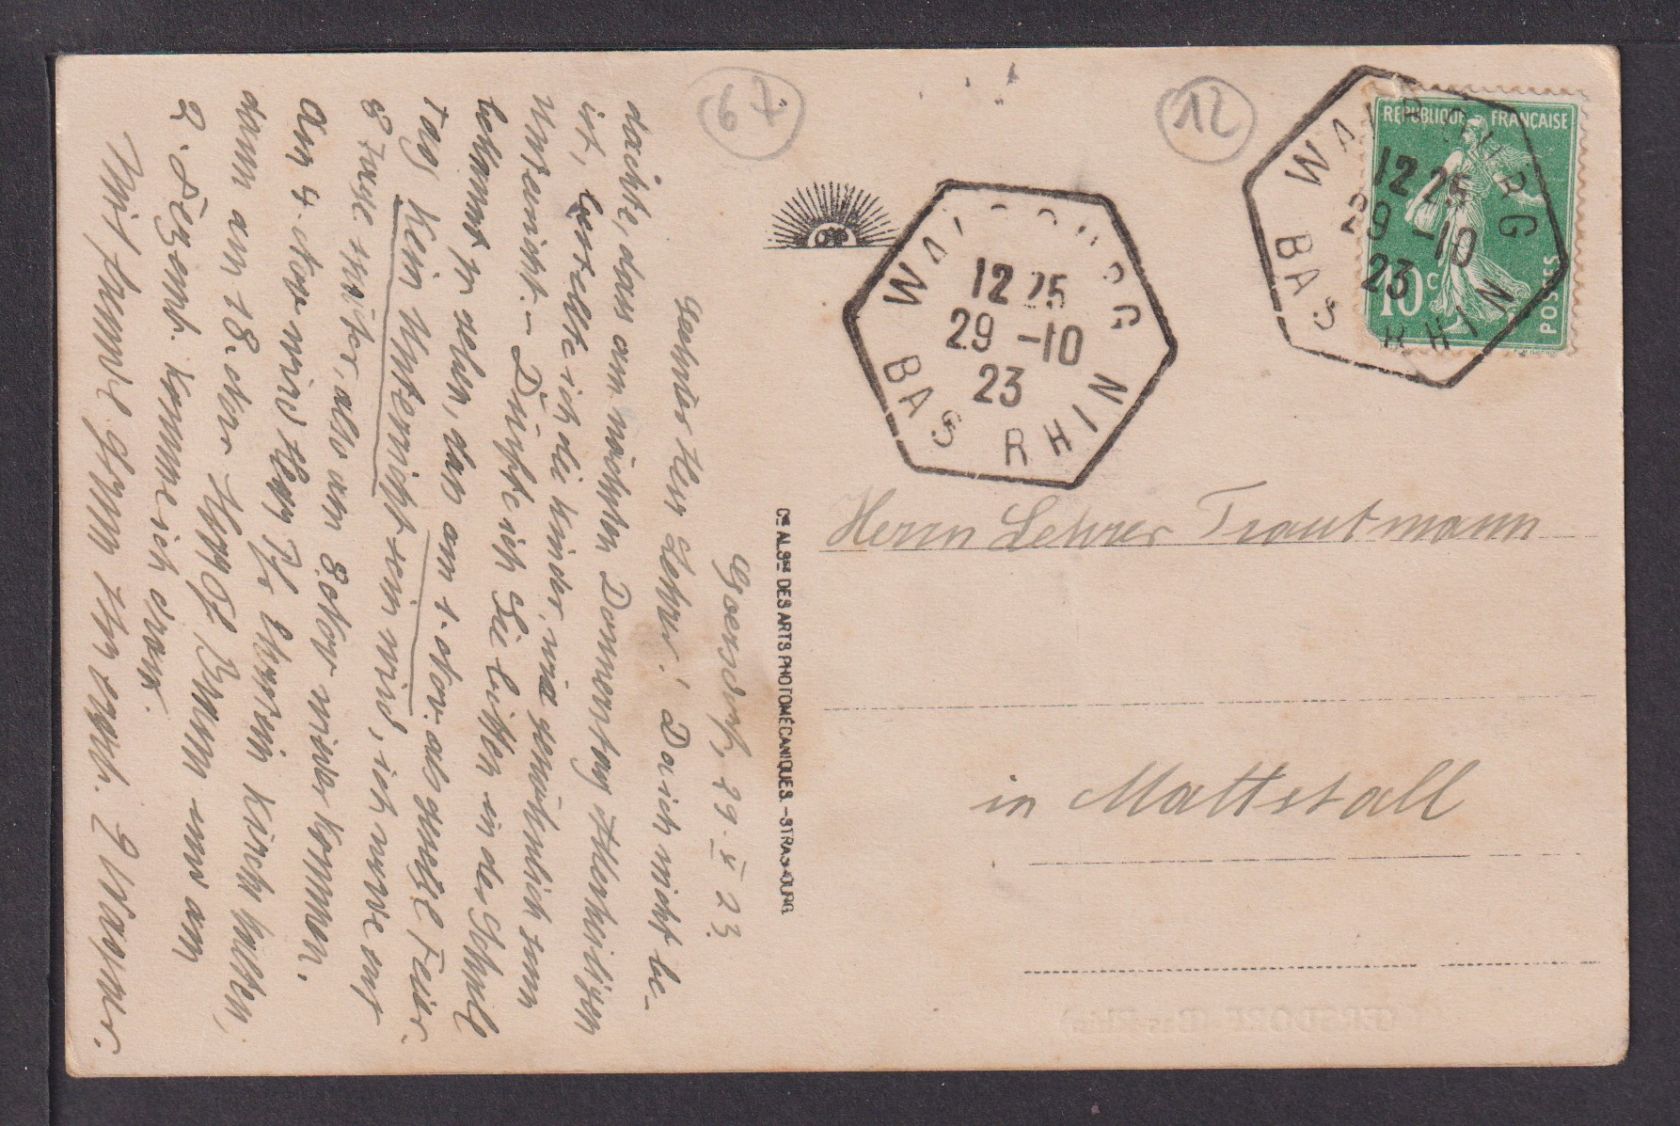 Goersdorf, 29. X 23.
Geehrter Herr Lehrer! Da ich nicht be-
dachte, dass am nächsten Donnerstag Allerheiligen
ist, bestellte ich die Kinder, wie gewöhnlich zum
Unterricht. - Dürfte ich Sie bitten in der Schule
bekannt zu geben, dass am 1. Nov. als gesetzl. Feier-
tag kein Unterricht sein wird, ich werde erst
8 Tage später, also am 8. Nov wieder kommen.
Am 4. Nov wird Herr Pf. Kirche halten,
dann am 18. Nov Herr Pf. Brumm und am
2. Dezemb. komme ich dran.
Mit freundl. Gruss Ihr ergeb. Wagner.
67
12
REPUBLIQUE FRANÇAISE
10c
POSTES
WALBOURG
12 25
29 -10
23
BAS RHIN
WALBOURG
12 25
29 -10
23
BAS RHIN
Cie ALSne DES ARTS PHOTOMÉCANIQUES. - STRASBOURG
Herrn Lehrer Trautmann
in Mattstall